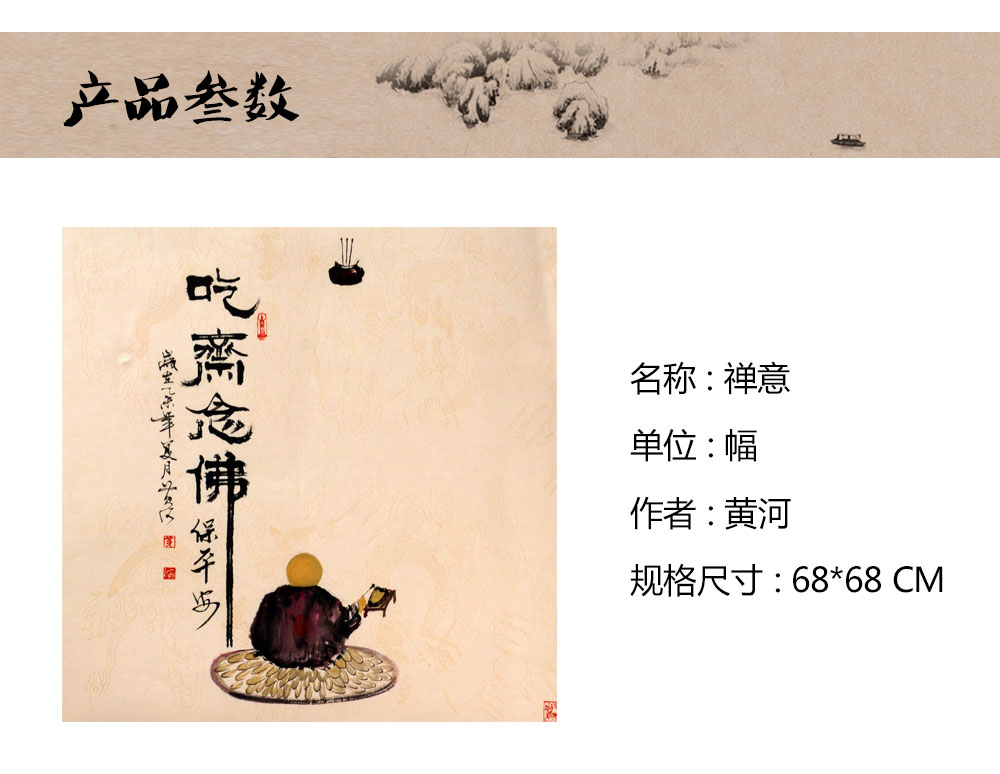 产品参数
吃齋念佛
保平安
歲在乙未年夏月黄河
名称 : 禅意
单位 : 幅
作者 : 黄河
规格尺寸 : 68*68 CM